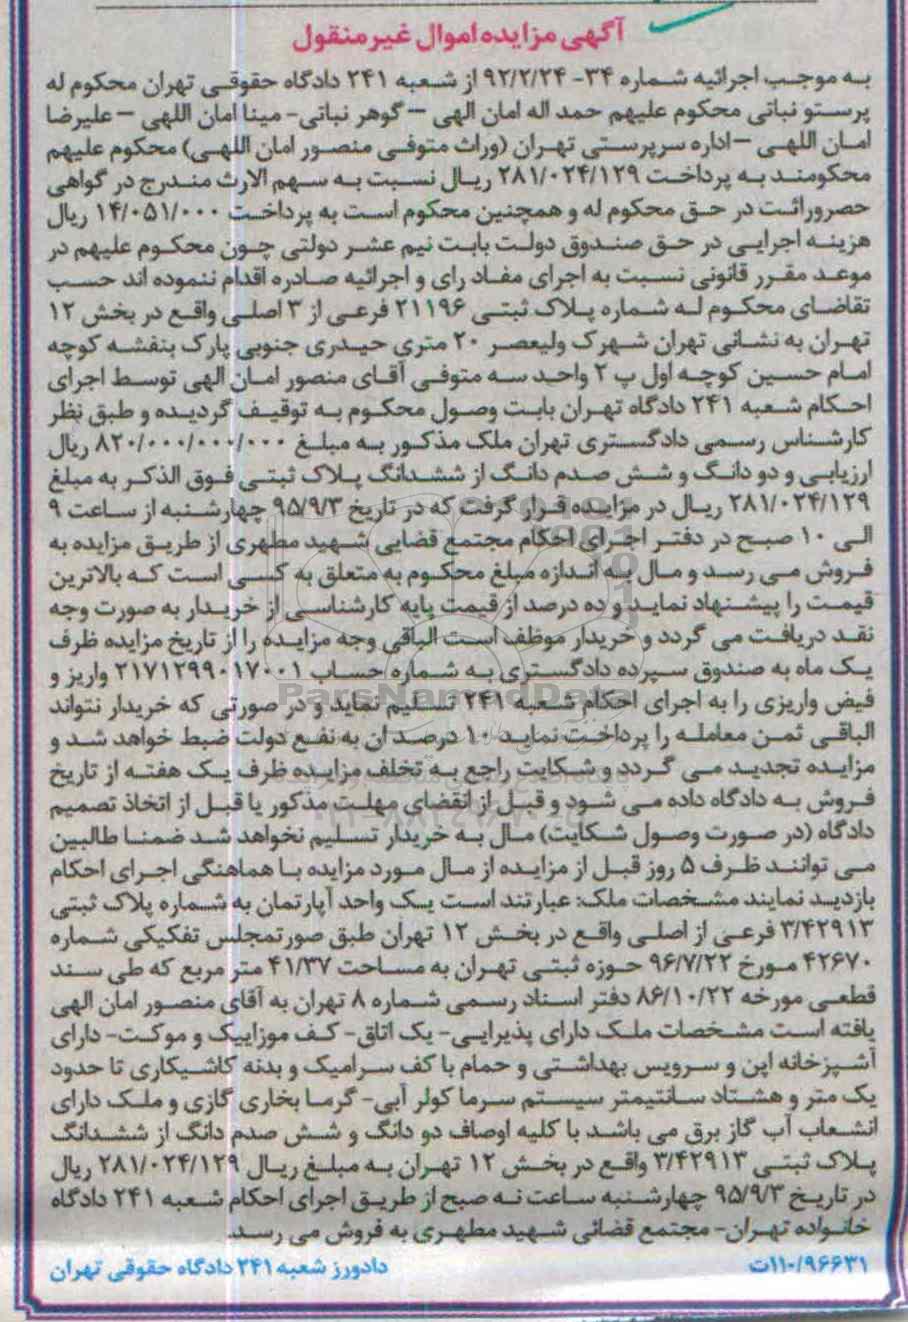 آگهی مزایده اموال غیر منقول
به موجب اجرائیه شماره ۳۴- ۹۲/۲/۲۴ از شعبه ۲۴۱ دادگاه حقوقی تهران محکوم له
پرستو نباتی محکوم علیهم حمد اله امان الهی – گوهر نباتی- مینا امان اللهی – علیرضا
امان اللهی –اداره سرپرستی تهران (وراث متوفی منصور امان اللهی) محکوم علیهم
محکومند به پرداخت ۲۸۱/۰۲۴/۱۲۹ ریال نسبت به سهم الارث مندرج در گواهی
حصروراثت در حق محکوم له و همچنین محکوم است به پرداخت ۱۴/۰۵۱/۰۰۰ ریال
هزینه اجرایی در حق صندوق دولت بابت نیم عشر دولتی چون محکوم علیهم در
موعد مقرر قانونی نسبت به اجرای مفاد رای و اجرائیه صادره اقدام ننموده اند حسب
تقاضای محکوم له شماره پلاک ثبتی ۲۱۱۹۶ فرعی از ۳ اصلی واقع در بخش ۱۲
تهران به نشانی تهران شهرک ولیعصر ۲۰ متری حیدری جنوبی پارک بنفشه کوچه
امام حسین کوچه اول پ ۲ واحد سه متوفی آقای منصور امان الهی توسط اجرای
احکام شعبه ۲۴۱ دادگاه تهران بابت وصول محکوم به توقیف گردیده و طبق نظر
کارشناس رسمی دادگستری تهران ملک مذکور به مبلغ ۸۲۰/۰۰۰/۰۰۰/۰۰۰ ریال
ارزیابی و دو دانگ و شش صدم دانگ از ششدانگ پلاک ثبتی فوق الذکر به مبلغ
۲۸۱/۰۲۴/۱۲۹ ریال در مزایده قرار گرفت که در تاریخ ۹۵/۹/۳ چهارشنبه از ساعت ۹
الی ۱۰ صبح در دفتر اجرای احکام مجتمع قضایی شهید مطهری از طریق مزایده به
فروش می رسد و مال به اندازه مبلغ محکوم به متعلق به کسی است که بالاترین
قیمت را پیشنهاد نماید و ده درصد از قیمت پایه کارشناسی از خریدار به صورت وجه
نقد دریافت می گردد و خریدار موظف است الباقی وجه مزایده را از تاریخ مزایده ظرف
یک ماه به صندوق سپرده دادگستری به شماره حساب ۲۱۷۱۲۹۹۰۱۷۰۰۱ واریز و
فیض واریزی را به اجرای احکام شعبه ۲۴۱ تسلیم نماید و در صورتی که خریدار نتواند
الباقی ثمن معامله را پرداخت نماید ۱۰ درصد ان به نفع دولت ضبط خواهد شد و
مزایده تجدید می گردد و شکایت راجع به تخلف مزایده ظرف یک هفته از تاریخ
فروش به دادگاه داده می شود و قبل از انقضای مهلت مذکور یا قبل از اتخاذ تصمیم
دادگاه (در صورت وصول شکایت) مال به خریدار تسلیم نخواهد شد ضمنا طالبین
می توانند ظرف ۵ روز قبل از مزایده از مال مورد مزایده با هماهنگی اجرای احکام
بازدید نمایند مشخصات ملک: عبارتند است یک واحد آپارتمان به شماره پلاک ثبتی
۳/۴۲۹۱۳ فرعی از اصلی واقع در بخش ۱۲ تهران طبق صورتمجلس تفکیکی شماره
۴۲۶۷۰ مورخ ۹۶/۷/۲۲ حوزه ثبتی تهران به مساحت ۴۱/۳۷ متر مربع که طی سند
قطعی مورخه ۸۶/۱۰/۲۲ دفتر اسناد رسمی شماره ۸ تهران به آقای منصور امان الهی
یافته است مشخصات ملک دارای پذیرایی- یک اتاق- کف موزاییک و موکت- دارای
آشپزخانه اپن و سرویس بهداشتی و حمام با کف سرامیک و بدنه کاشیکاری تا حدود
یک متر و هشتاد سانتیمتر سیستم سرما کولر آبی- گرما بخاری گازی و ملک دارای
انشعاب آب گاز برق می باشد با کلیه اوصاف دو دانگ و شش صدم دانگ از ششدانگ
پلاک ثبتی ۳/۴۲۹۱۳ واقع در بخش ۱۲ تهران به مبلغ ریال ۲۸۱/۰۲۴/۱۲۹ ریال
در تاریخ ۹۵/۹/۳ چهارشنبه ساعت نه صبح از طریق اجرای احکام شعبه ۲۴۱ دادگاه
خانواده تهران- مجتمع قضائی شهید مطهری به فروش می رسد.
دادورز شعبه ۲۴۱ دادگاه حقوقی تهران
۱۱۰/۹۶۶۳۱ت
ParsNamadData